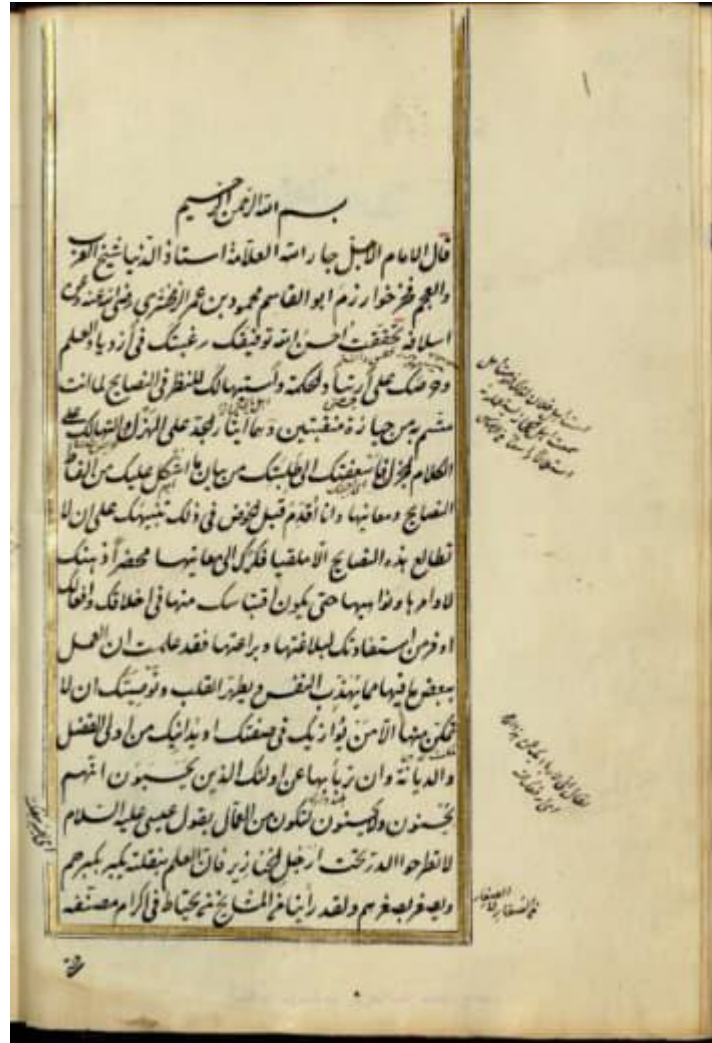 بسم الله الرحمن الرحيم
قال الامام الاجل جار الله العلامة استاذ الدنيا شيخ العرب
والعجم فخر خوارزم ابو القاسم محمود بن عمر الزمخشري رضى الله عنه وعن
اسلافه تحققت احسن الله توفيقك رغبتك فى ازدياد العلم
وحرصك على ارتياد الحكمة واستهالك للنظر فى النصايح لما انت
متسم به من حيازة منقبتين وهما ايثار الجد على الهزل والتهالك على
الكلام الجزل فاسعفتك الى طلبتك من بيان ما اشكل عليك من الفاظ
النصايح ومعانيها وانا اقدم قبل الخوض فى ذلك تنبيهك على ان لا
تطالع هذه النصايح الا ملقيا فكرك الى معانيها محضرا ذهنك
لاوامرها ونواهيها حتى يكون اقتباسك منها فى اخلاقك وافعالك
اوفر من استفادتك لبلاغتها وبراعتها فقد علمت ان العمل
ببعض ما فيها مما يهذب النفس ويطهر القلب وتوصيتك ان لا
تمكن منها الا من يوازيك فى صفتك او يدانيك من اولى الفضل
والديانة وان تربأ بها عن اولئك الذين يحسبون انهم
يحسنون ولا يحسنون لتكون من العمال بقول عيسى عليه السلام
لا تطرحوا الدر تحت ارجل الخنازير فان العلم بنقلته يكبر بكبرهم
ويصغر بصغرهم ولقد رأينا من المشايخ من يحتاط فى اكرام مصنفه